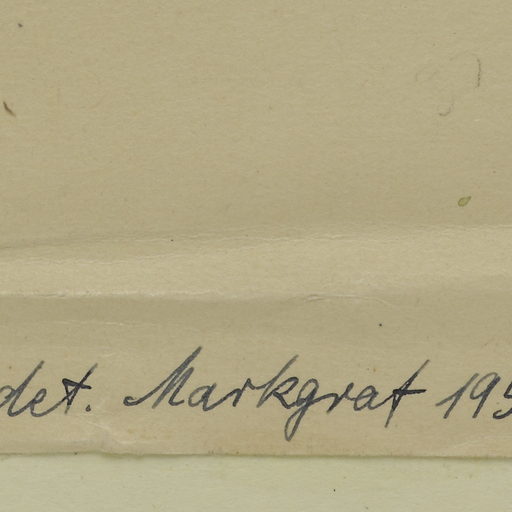 det. Markgraf 195